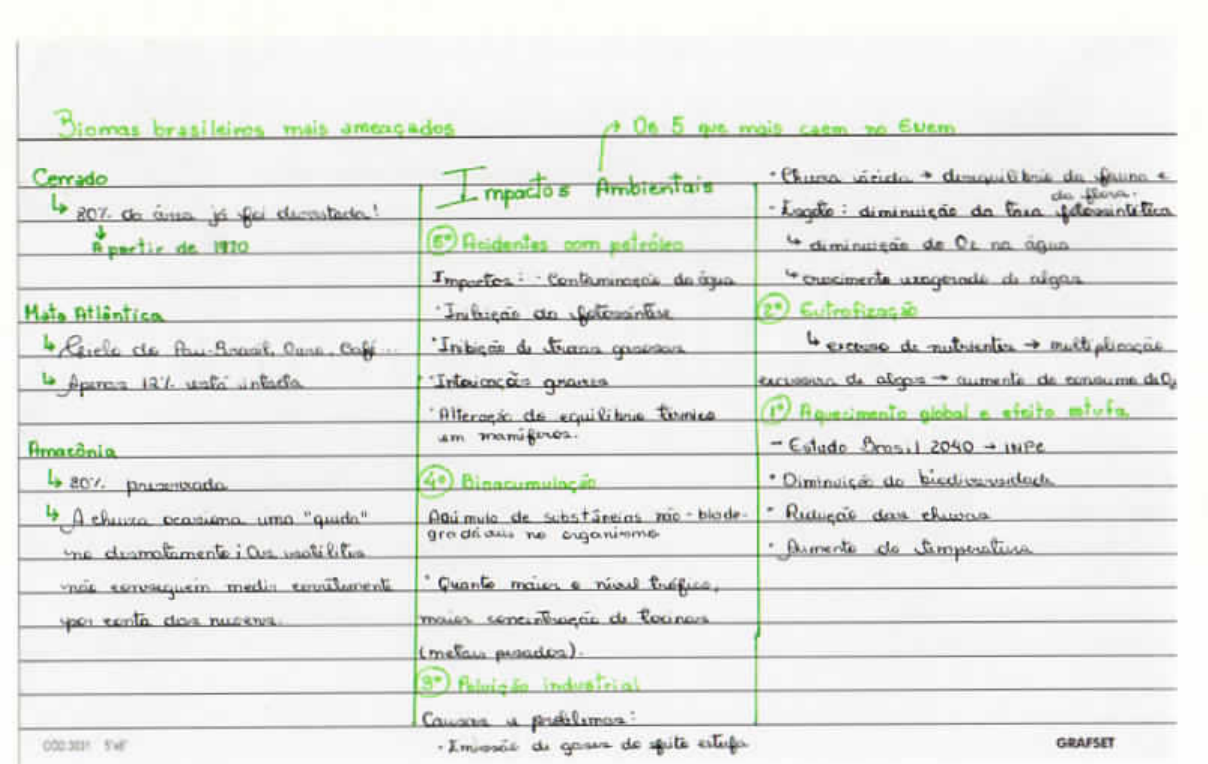 Biomas brasileiros mais ameaçados
Cerrado
↳ 80% da área já foi devastada!
↓
A partir de 1970
Mata Atlântica
↳ Ciclo do Pau-Brasil, Ouro, Café...
↳ Apenas 12% está intacta
Amazônia
↳ 80% preservada
↳ A chuva ocasiona uma "queda"
no desmatamento; Os satélites
não conseguem medir corretamente
por conta das nuvens.
→ Os 5 que mais caem no Enem
Impactos Ambientais
5º) Acidentes com petróleo
Impactos: · Contaminação da água
· Inibição da fotossíntese
· Inibição de trocas gasosas
· Intoxicações graves
· Alteração do equilíbrio térmico
em mamíferos.
4º) Bioacumulação
Acúmulo de substâncias não-biode-
gradáveis no organismo
· Quanto maior o nível trófico,
maior concentração de toxinas
(metais pesados).
3º) Poluição industrial
Causas e problemas:
· Emissão de gases do efeito estufa
· Chuva ácida → desequilíbrio da fauna e
da flora.
· Esgoto: diminuição da taxa fotossintética
↳ diminuição de O2 na água
↳ crescimento exagerado de algas
2º) Eutrofização
↳ excesso de nutrientes → multiplicação
excessiva de algas → aumento do consumo de O2
1º) Aquecimento global e efeito estufa
- Estudo Brasil 2040 → INPE
· Diminuição da biodiversidade
· Redução das chuvas
· Aumento da temperatura
GRAFSET